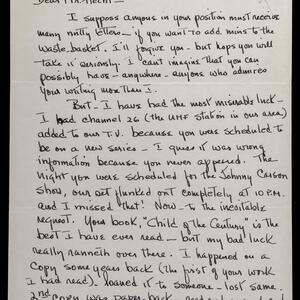 Dear Mr. Hecht —
I suppose anyone in your position must receive
many nutty letters — if you want to add mine to the
waste basket. I'll forgive you — but hope you will
take it seriously. I can't imagine that you can
possibly have — anywhere — anyone who admires
your writing more than I.
But — I have had the most miserable luck —
I had channel 26 (the UHF station in our area)
added to our T.V. because you were scheduled to
be on a new series — I guess it was wrong
information because you never appeared. The
night you were scheduled for the Johnny Carson
show, our set flunked out completely at 10 P.M.
and I missed that! Now — to the inevitable
request. Your book, "Child of the Century" is the
best I have ever read — but my bad luck
really runneth over there. I happened on a
copy some years back (the first of your work
I had read). loaned it to someone — lost same.
2nd copy was paper back